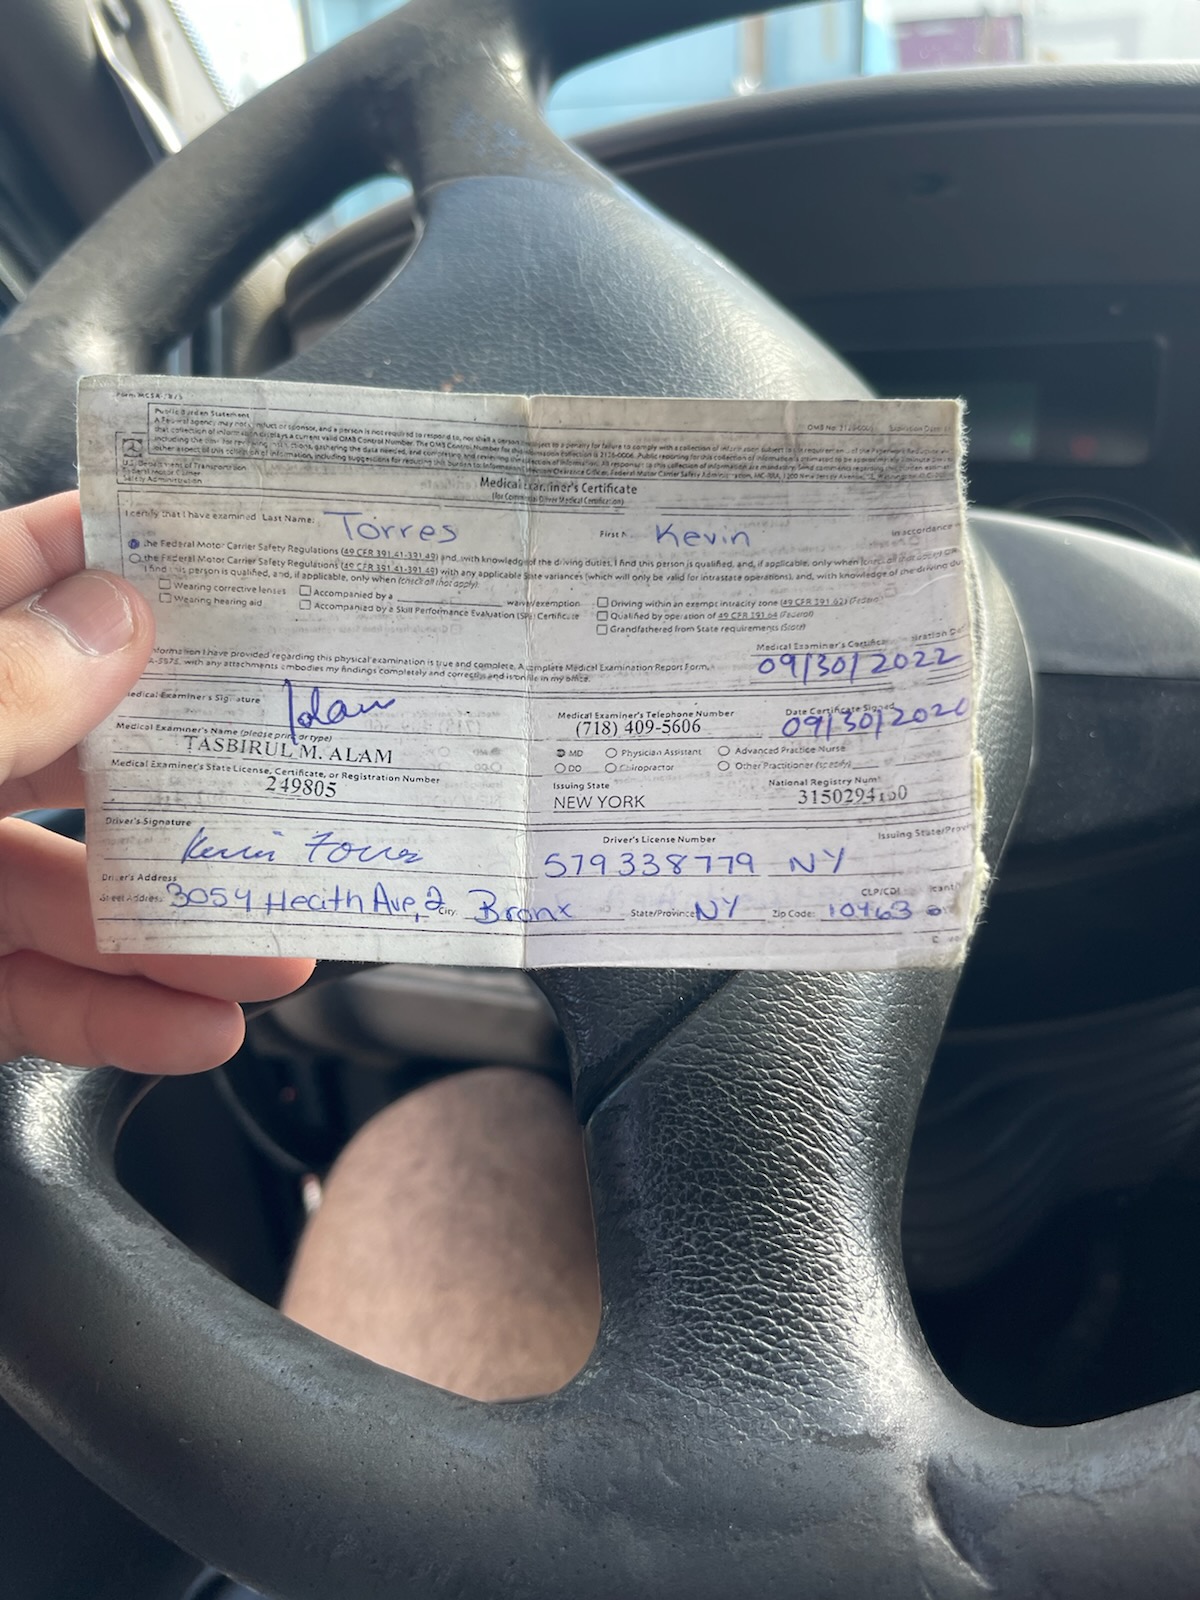 Form MCSA-5876
OMB No. 2126-0006 Expiration Date:
Public Burden Statement
A Federal agency may not conduct or sponsor, and a person is not required to respond to, nor shall a person be subject to a penalty for failure to comply with a collection of information subject to the requirements of the Paperwork Reduction
that collection of information displays a current valid OMB Control Number. The OMB Control Number for this information collection is 2126-0006. Public reporting for this collection of information is estimated to be approximately
including the time for reviewing instructions, gathering the data needed, and completing and reviewing the collection of information. All responses to this collection of information are mandatory. Send comments regarding this burden estimate
other aspect of this collection of information, including suggestions for reducing this burden to: Information Collection Clearance Officer, Federal Motor Carrier Safety Administration, MC-RRA, 1200 New Jersey Avenue, SE, Washington
U.S. Department of Transportation
Federal Motor Carrier
Safety Administration
Medical Examiner's Certificate
(for Commercial Driver Medical Certification)
I certify that I have examined Last Name: Torres First N Kevin in accordance
the Federal Motor Carrier Safety Regulations (49 CFR 391.41-391.49) and, with knowledge of the driving duties, I find this person is qualified, and, if applicable, only when (check all that apply)
the Federal Motor Carrier Safety Regulations (49 CFR 391.41-391.49) with any applicable State variances (which will only be valid for intrastate operations), and, with knowledge of the driving
I find this person is qualified, and, if applicable, only when (check all that apply):
Wearing corrective lenses Accompanied by a waiver/exemption Driving within an exempt intracity zone (49 CFR 391.62) (Federal)
Wearing hearing aid Accompanied by a Skill Performance Evaluation (SPE) Certificate Qualified by operation of 49 CFR 391.64 (Federal)
Grandfathered from State requirements (State)
information I have provided regarding this physical examination is true and complete. A complete Medical Examination Report Form,
-5875, with any attachments embodies my findings completely and correctly, and is on file in my office.
Medical Examiner's Certificate
09/30/2022
Medical Examiner's Signature
Medical Examiner's Telephone Number
(718) 409-5606
Date Certificate Signed
09/30/2020
Medical Examiner's Name (please print or type)
TASBIRUL M. ALAM
MD Physician Assistant Advanced Practice Nurse
DO Chiropractor Other Practitioner (specify)
Medical Examiner's State License, Certificate, or Registration Number
249805
Issuing State
NEW YORK
National Registry Num
Driver's Signature
Kevin Torres
Driver's License Number
579338779
Issuing State/Provi
NY
Driver's Address
Street Address: 3054 Heaith Ave, 2 City: Bronx State/Province: NY Zip Code: 10463
CLP/CDL